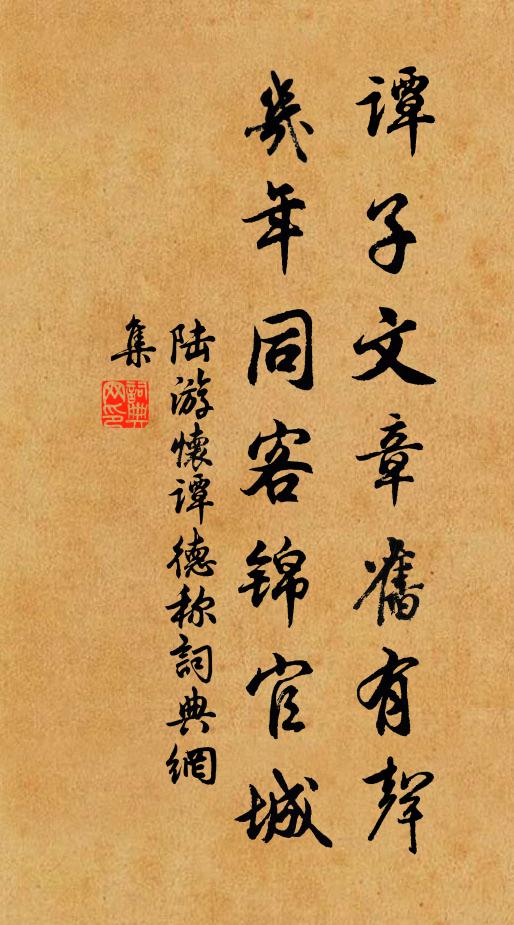 谭子文章舊有聲
幾年同客錦官城
陆游懷谭德称詞典網
集
詞典
网印